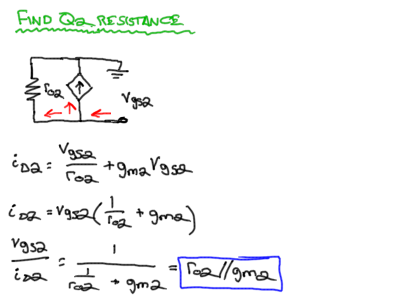 FIND Q2 RESISTANCE
ro2
Vgs2
iD2 = Vgs2/ro2 + gm2 Vgs2
iD2 = Vgs2(1/ro2 + gm2)
Vgs2/iD2 = 1/(1/ro2 + gm2) = ro2//gm2